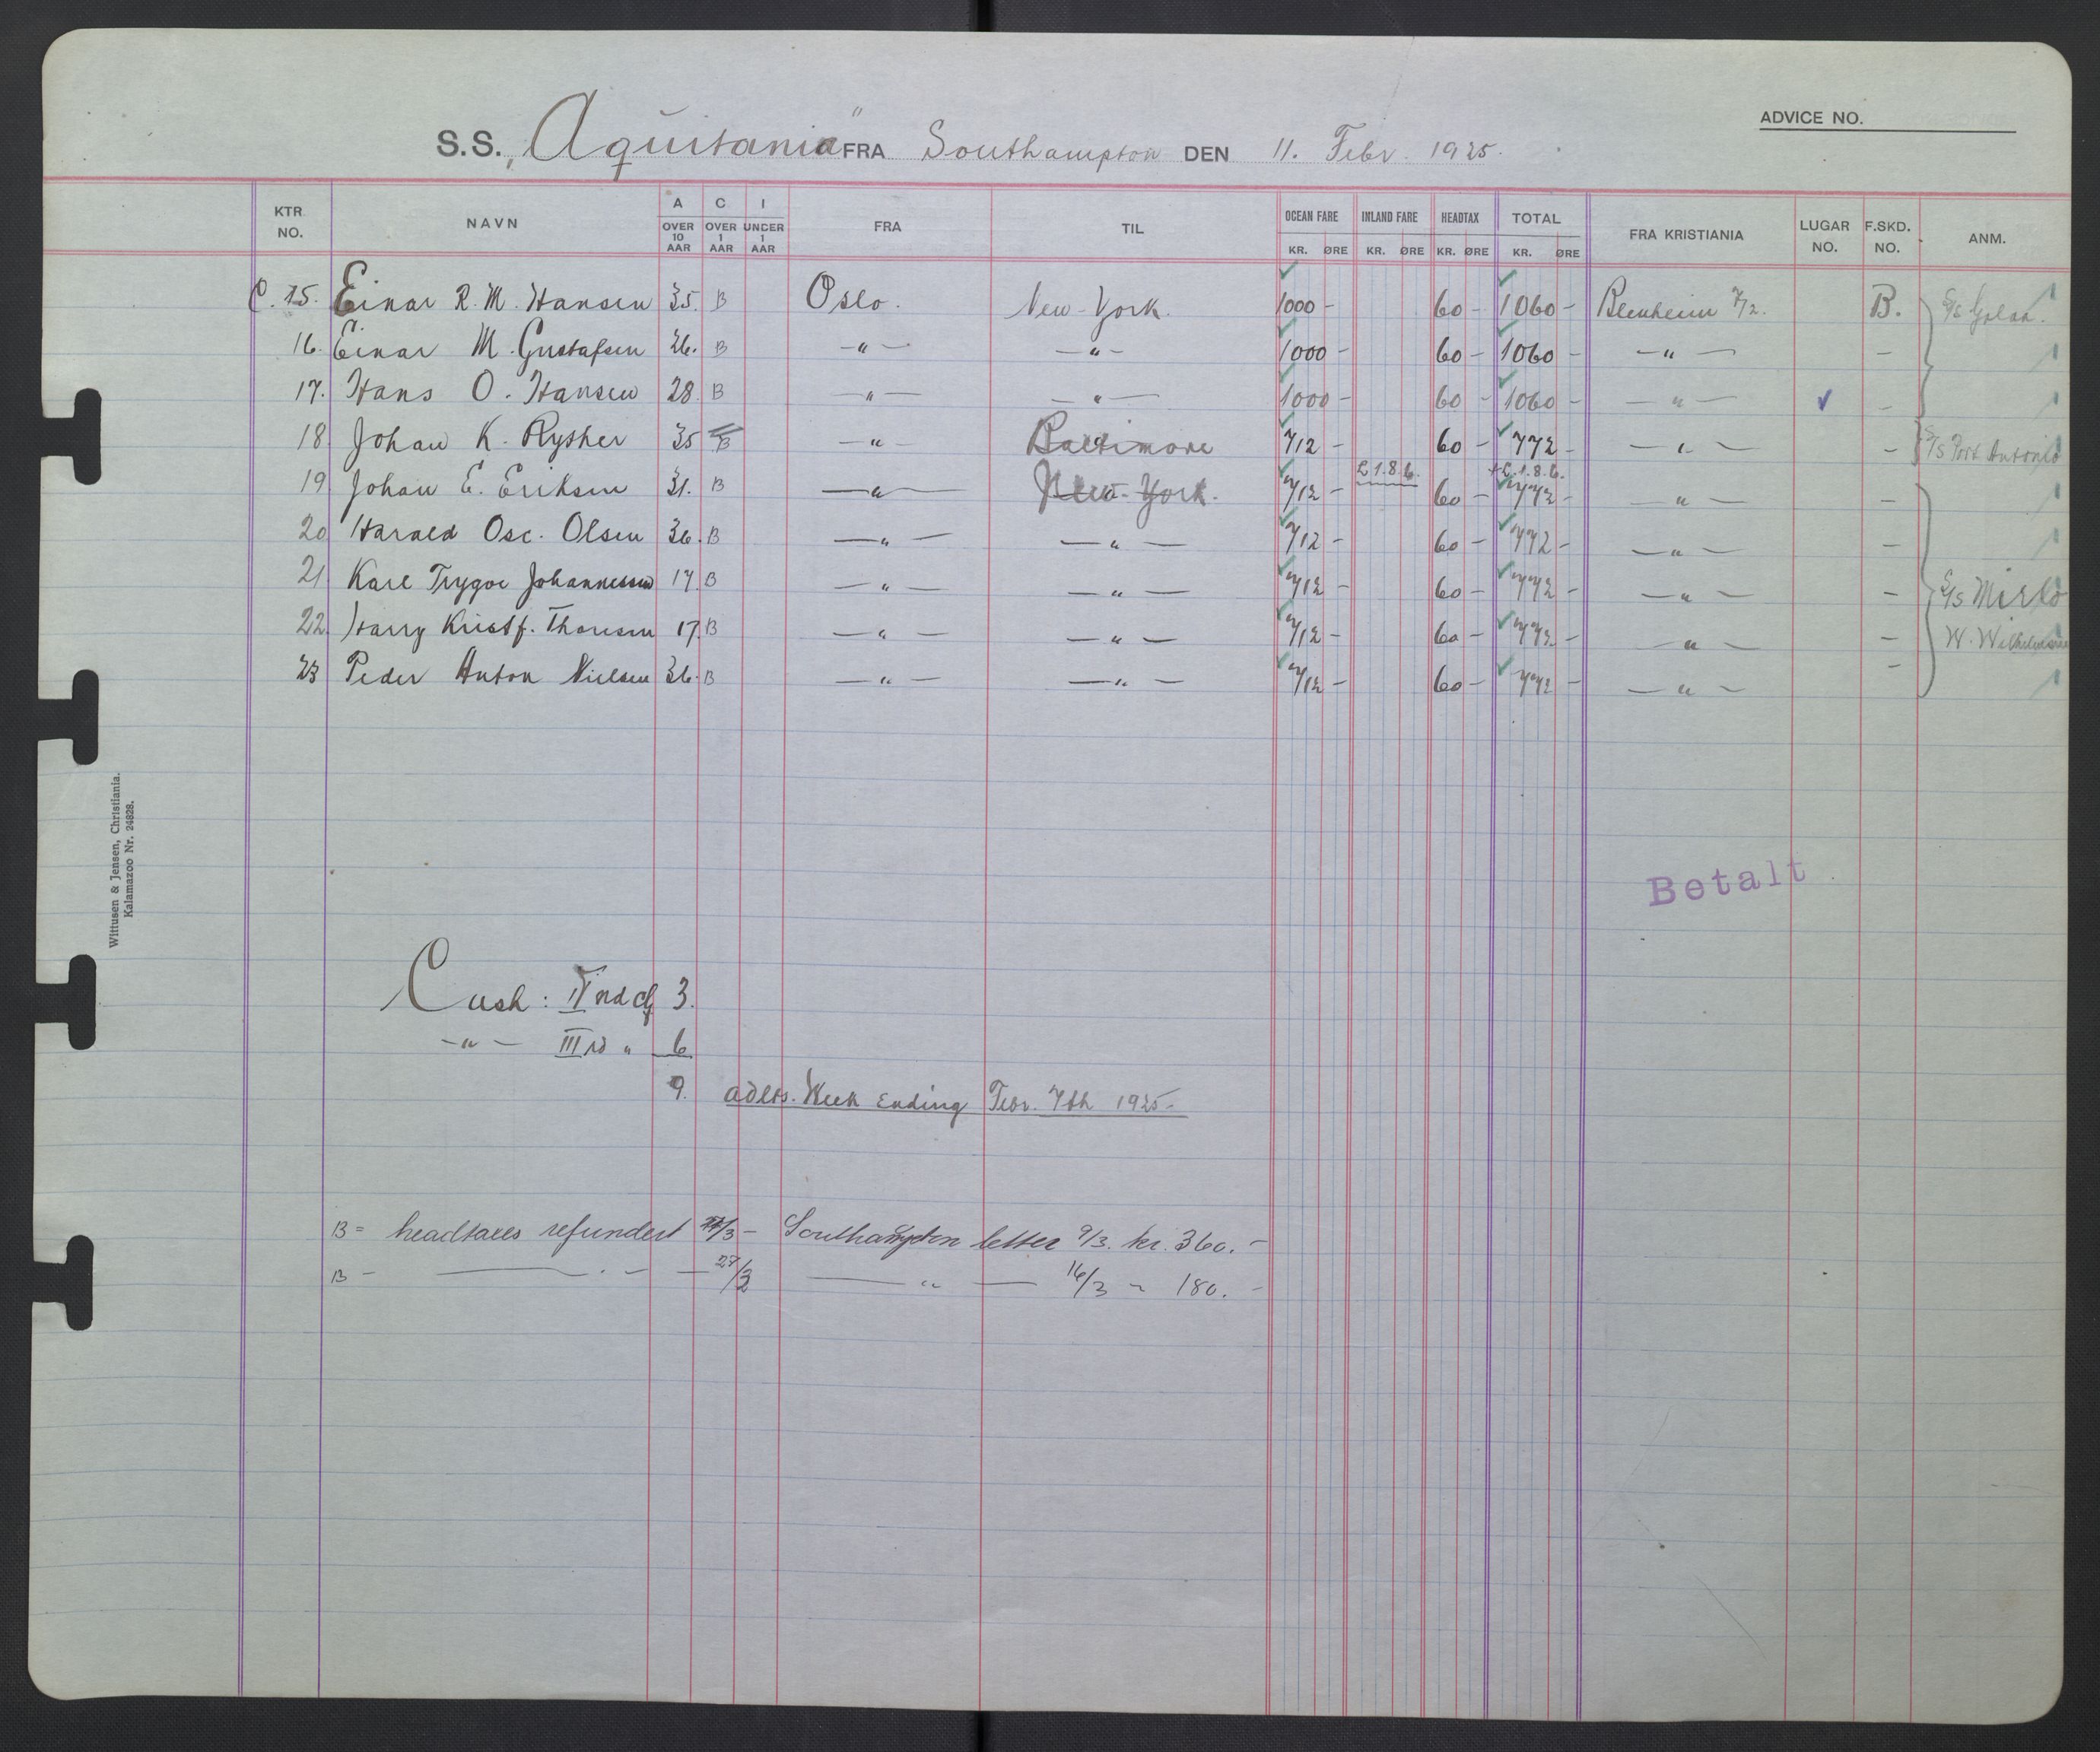 ADVICE NO.
S.S. „Aquitania" FRA Southampton DEN 11. Febr. 1925.
KTR. NO. NAVN A OVER 10 AAR C OVER 1 AAR I UNDER 1 AAR FRA TIL OCEAN FARE KR. ØRE INLAND FARE KR. ØRE HEADTAX KR. ØRE TOTAL KR. ØRE FRA KRISTIANIA LUGAR NO. F.SKD. NO. ANM.
C. 15. Einar R. M. Hansen 35. B Oslo. New-York. 1000 - 60 - 1060 - Blenheim 7/2. B. S/S
16. Einar M. Gustafsen 26. B -"- -"- 1000 - 60 - 1060 - -"- -
17. Hans O. Hansen 28. B -"- -"- 1000 - 60 - 1060 - -"- -
18 Johan K. Rysher 35 B -"- Baltimore 712 - 60 - 772 - -"- - S/S Port Antonio
£ 1.8.6. + £.1.8.6.
19 Johan E. Eriksen 31. B -"- New-York. 712 - 60 - 772 - -"- -
20 Harald Osc. Olsen 36. B -"- -"- 712 - 60 - 772 - -"- -
21 Karl Trygve Johannessen 17. B -"- -"- 712 - 60 - 772 - -"- - S/S Mirlo
22 Harry Kristf. Thoresen 17. B -"- -"- 712 - 60 - 772 - -"- - W. Wilhelmsen
23 Peder Anton Nielsen 36. B -"- -"- 712 - 60 - 772 - -"- -
Wittusen & Jensen, Christiania.
Kalamazoo Nr. 24828.
Betalt
Cash: nd cl 3.
-"- III rd " 6
9. adlts. Week Ending Febr. 7th 1925-
B = headtaxes refundert /3 - Southampton letter 9/3. kr. 360. -
B - -"- - 27/3 -"- 16/3 - 180. -